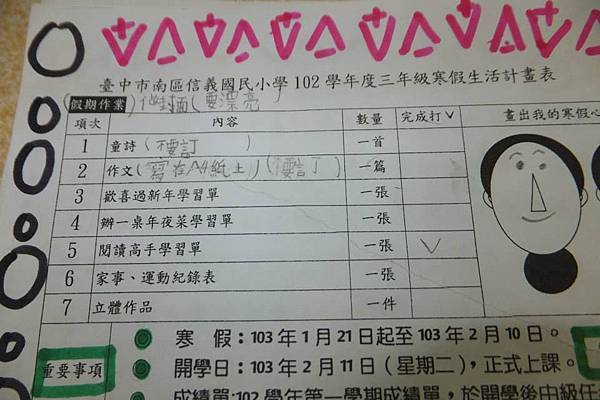 臺中市南區信義國民小學102學年度三年級寒假生活計畫表
(假期作業) 做封面(要漂亮
項次 內容 數量 完成打∨ 畫出我的寒假心
1 童詩(要訂 ) 一首
2 作文(寫在A4紙上)(要訂) 一篇
3 歡喜過新年學習單 一張
4 辦一桌年夜菜學習單 一張
5 閱讀高手學習單 一張 ∨
6 家事、運動紀錄表 一張
7 立體作品 一件
寒 假:103年1月21日起至103年2月10日。
重要事項 開學日:103年2月11日(星期二),正式上課。
成績單:102學年第一學期成績單,於開學後由級任